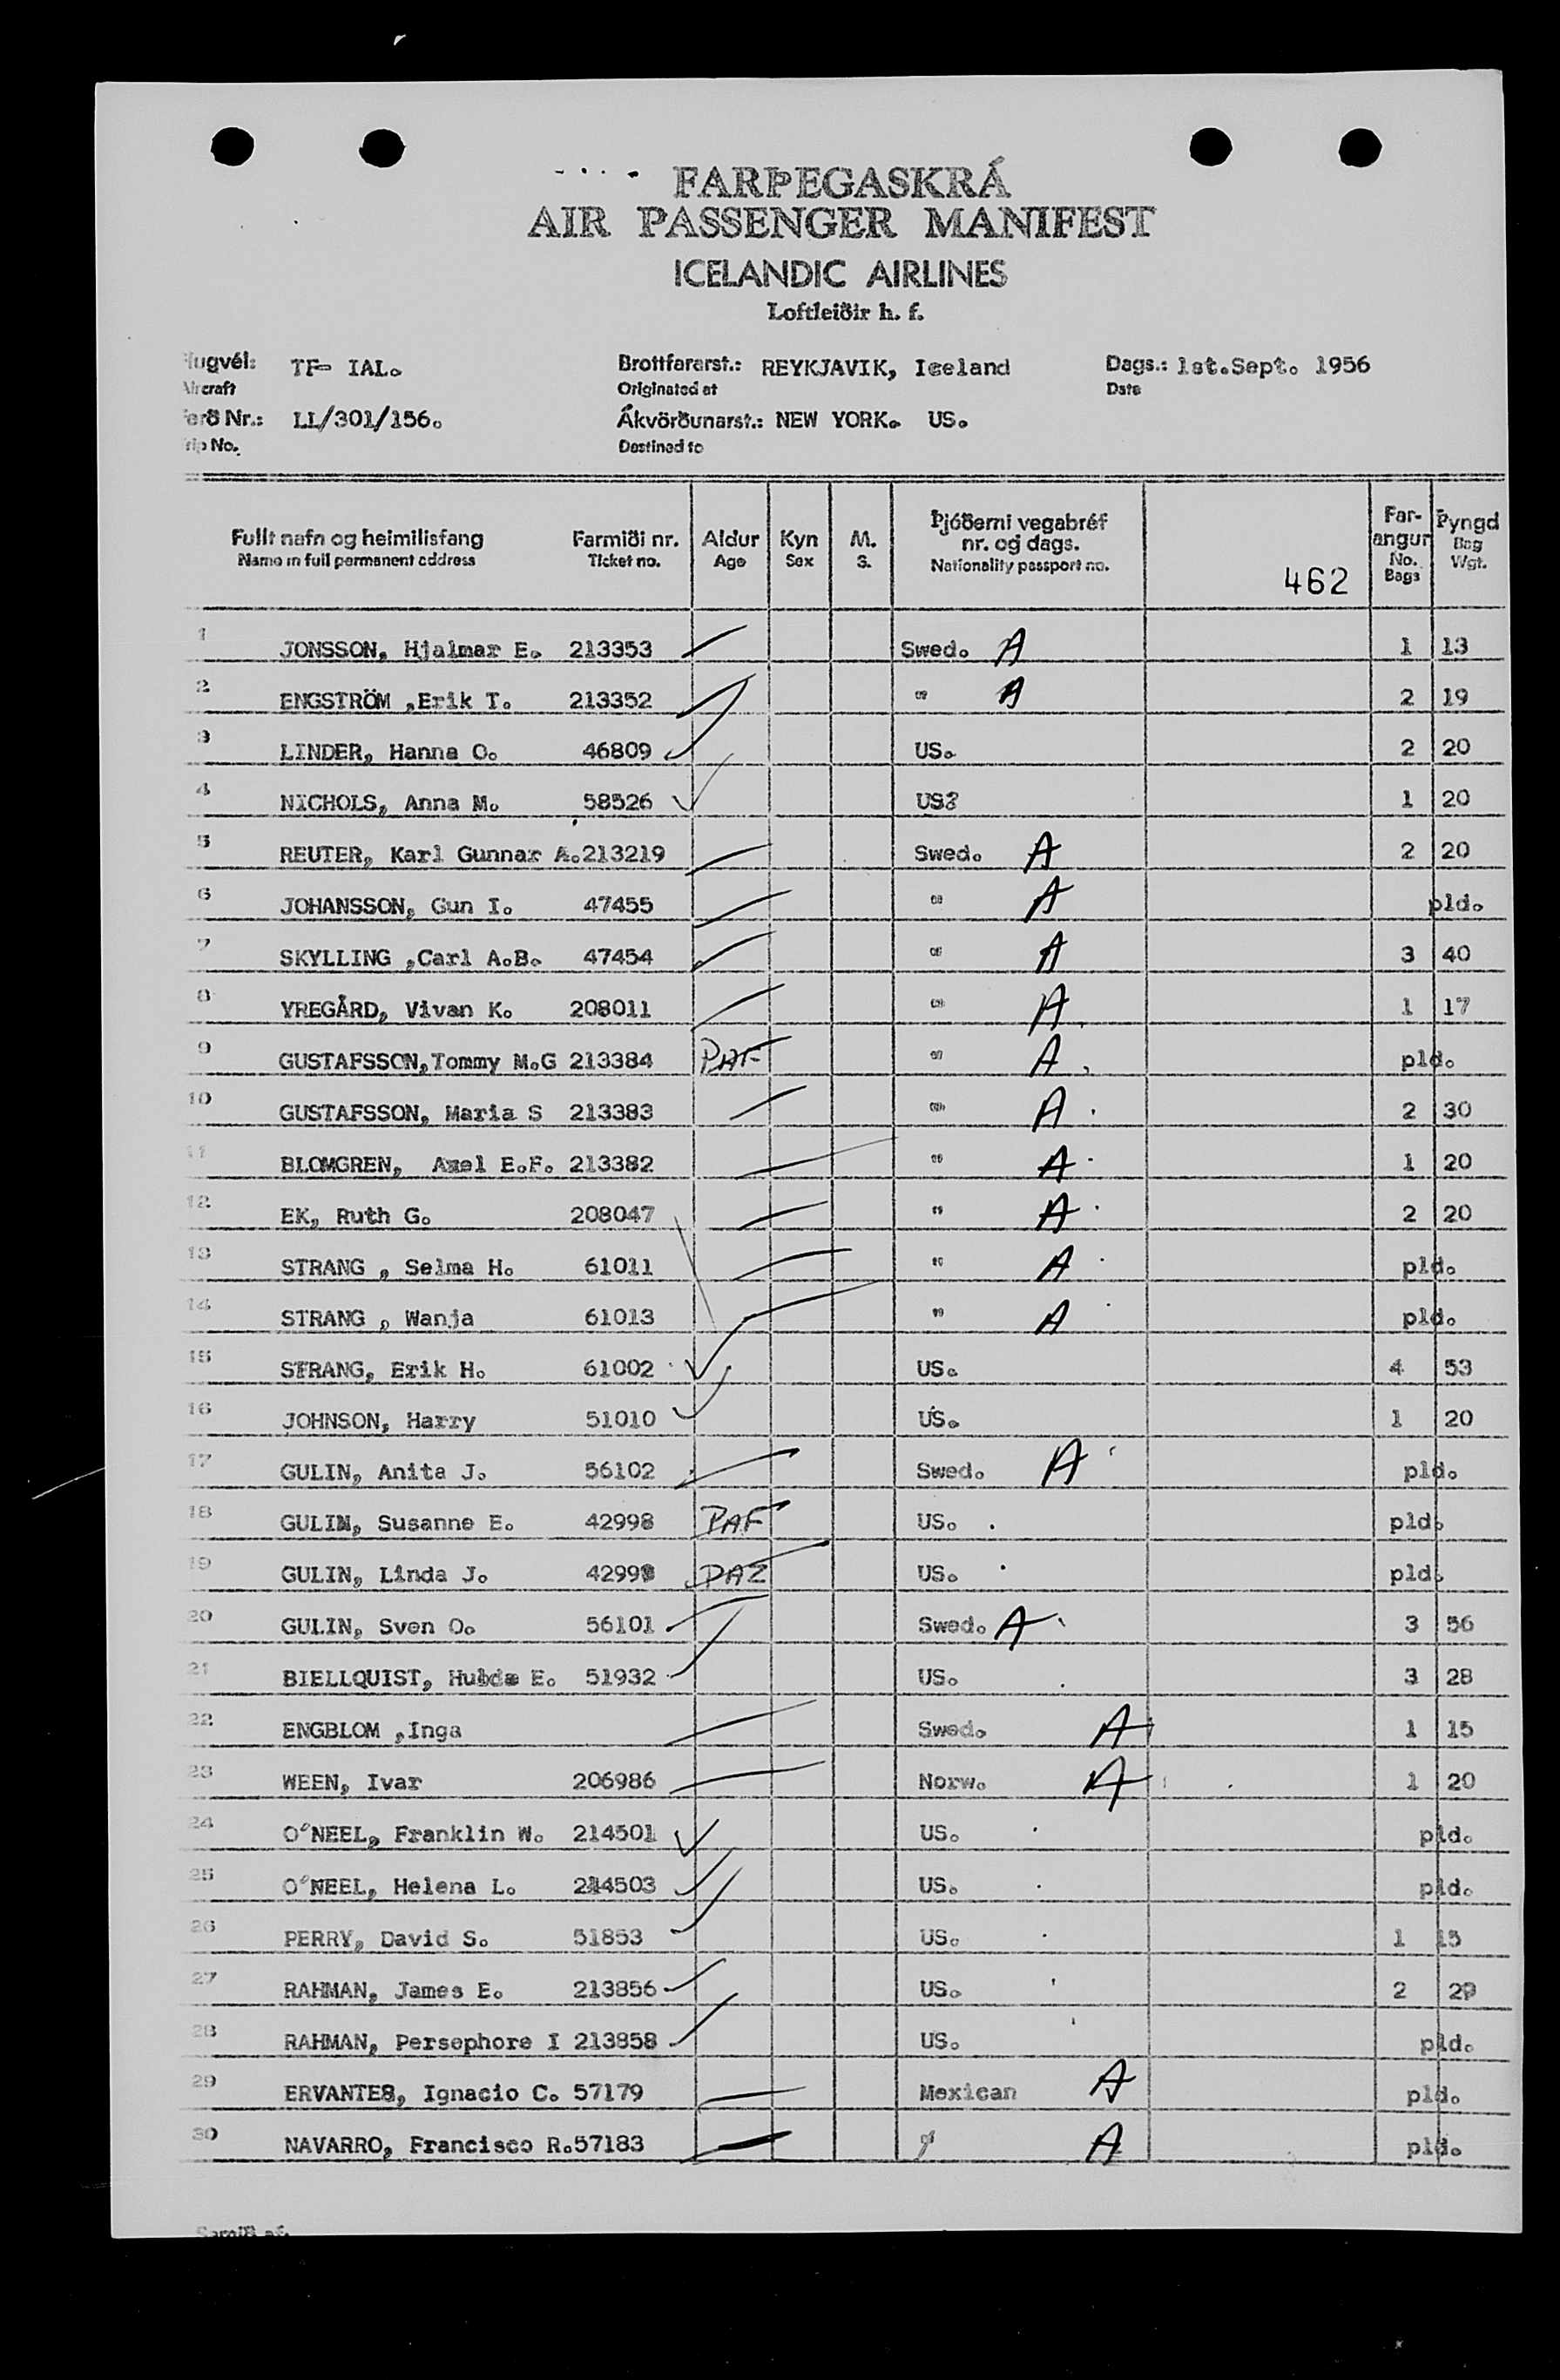 FARÞEGASKRÁ
AIR PASSENGER MANIFEST
ICELANDIC AIRLINES
Loftleiðir h. f.
lugvél: TF- IAL. Brottfararst.: REYKJAVIK, Iceland Dags.: 1st.Sept. 1956
Aircraft Originated at Date
erð Nr.: LL/301/156. Ákvörðunarst.: NEW YORK. US.
rip No. Destined to
Fullt nafn og heimilisfang Farmiði nr. Aldur Kyn M. Þjóðerni vegabréf nr. og dags. Far-angur Þyngd
Name in full permanent address Ticket no. Age Sex S. Nationality passport no. 462 No. Bags Bag Wgt.
1 JONSSON, Hjalmar E. 213353 Swed. A 1 13
2 ENGSTRÖM ,Erik T. 213352 " A 2 19
3 LINDER, Hanna O. 46809 US. 2 20
4 NICHOLS, Anna M. 58526 US? 1 20
5 REUTER, Karl Gunnar A.213219 Swed. A 2 20
6 JOHANSSON, Gun I. 47455 " A pld.
7 SKYLLING ,Carl A.B. 47454 " A 3 40
8 YREGÅRD, Vivan K. 208011 " A 1 17
9 GUSTAFSSON,Tommy M.G 213384 PAF " A pld.
10 GUSTAFSSON, Maria S 213383 " A 2 30
11 BLOMGREN, Axel E.F. 213382 " A 1 20
12 EK, Ruth G. 208047 " A 2 20
13 STRANG , Selma H. 61011 " A pld.
14 STRANG , Wanja 61013 " A pld.
15 STRANG, Erik H. 61002 US. 4 53
16 JOHNSON, Harry 51010 US. 1 20
17 GULIN, Anita J. 56102 Swed. A pld.
18 GULIN, Susanne E. 42998 PAF US. pld.
19 GULIN, Linda J. US. pld.
20 GULIN, Sven O. 56101 Swed. A 3 56
21 BIELLQUIST, Hulda E. 51932 US. 3 28
22 ENGBLOM ,Inga Swed. A 1 15
23 WEEN, Ivar 206986 Norw. A 1 20
24 O'NEEL, Franklin W. 214501 US. pld.
25 O'NEEL, Helena L. 214503 US. pld.
26 PERRY, David S. 51853 US. 1 15
27 RAHMAN, James E. 213856 US. 2 29
28 RAHMAN, Persephore I 213858 US. pld.
29 ERVANTES, Ignacio C. 57179 Mexican A pld.
30 NAVARRO, Francisco R.57183 " A pld.